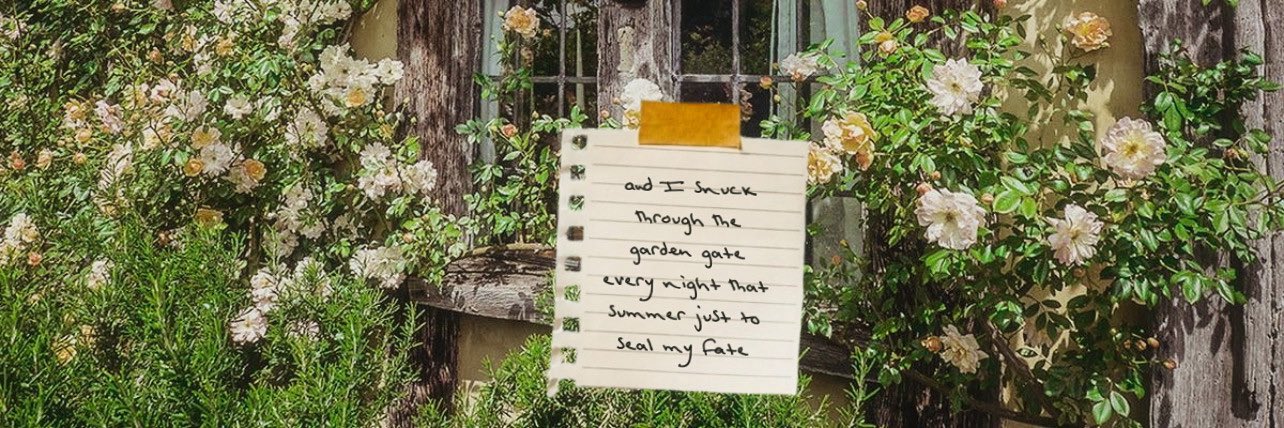 and I snuck
through the
garden gate
every night that
summer just to
seal my fate